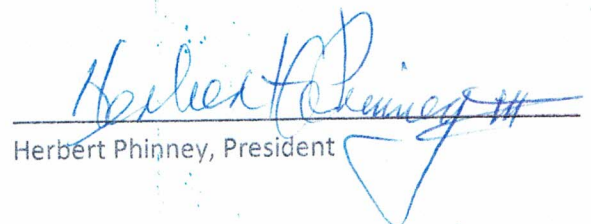 Herbert H Phinney III
Herbert Phinney, President